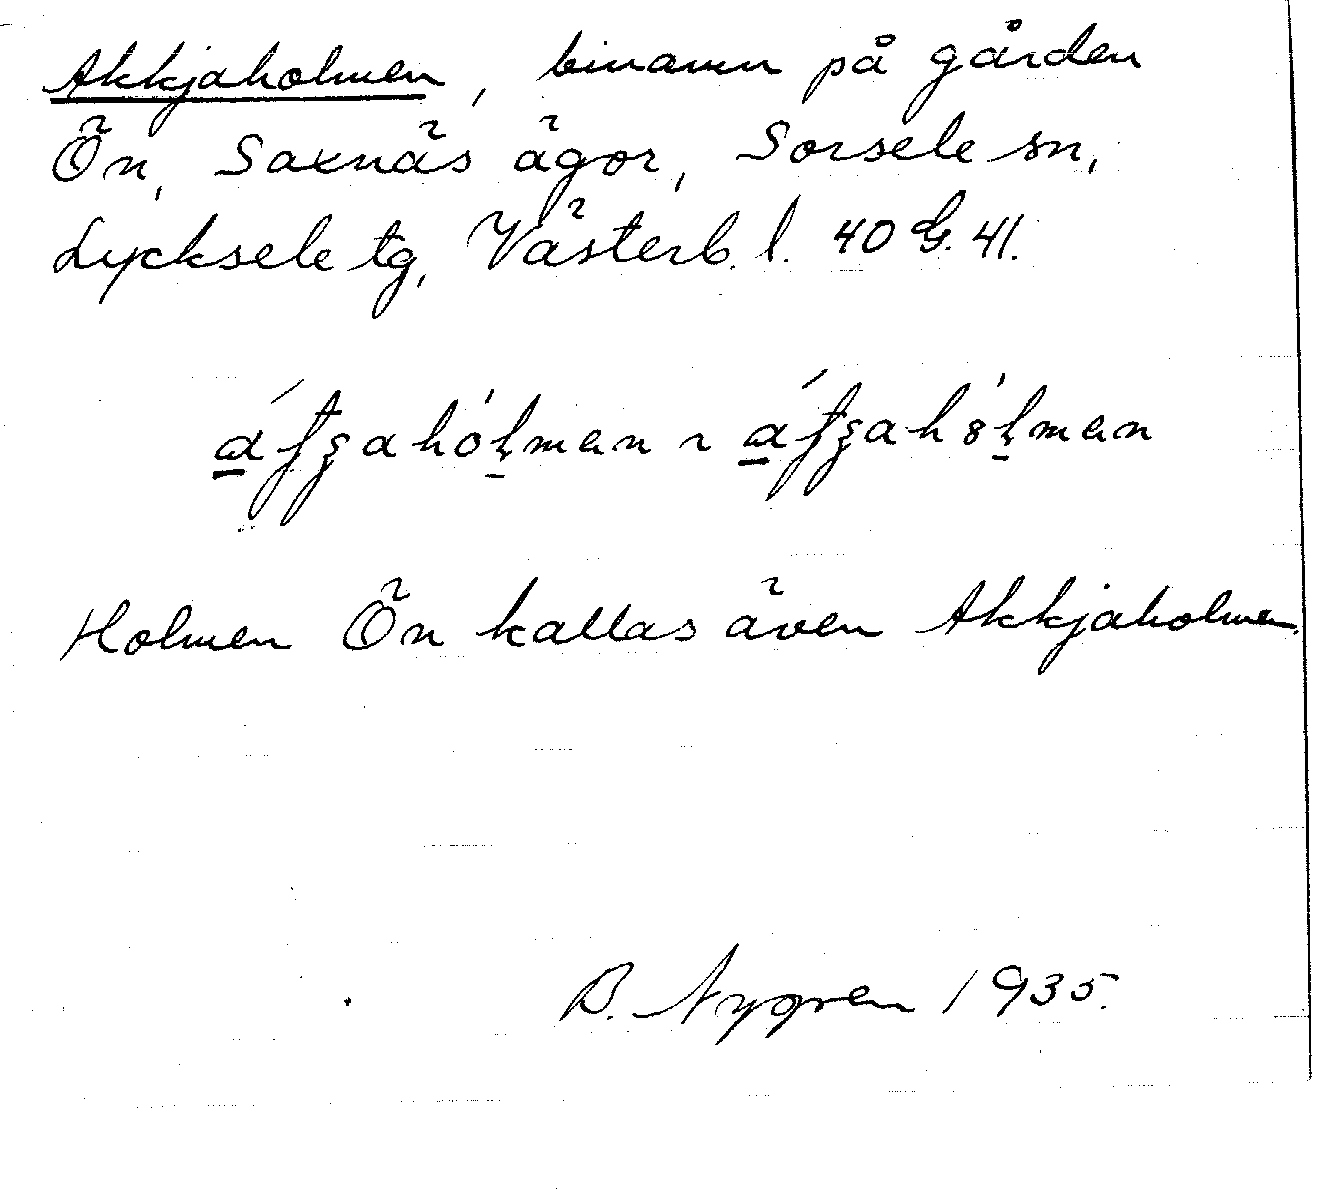 Akkjaholmen, binamn på gården
Ön, Saxnäs ägor, Sorsele sn,
Lycksele tg, Västerb. l. 40 G. 41.
Holmen Ön kallas även Akkjaholmen.
B. Nygren 1935.